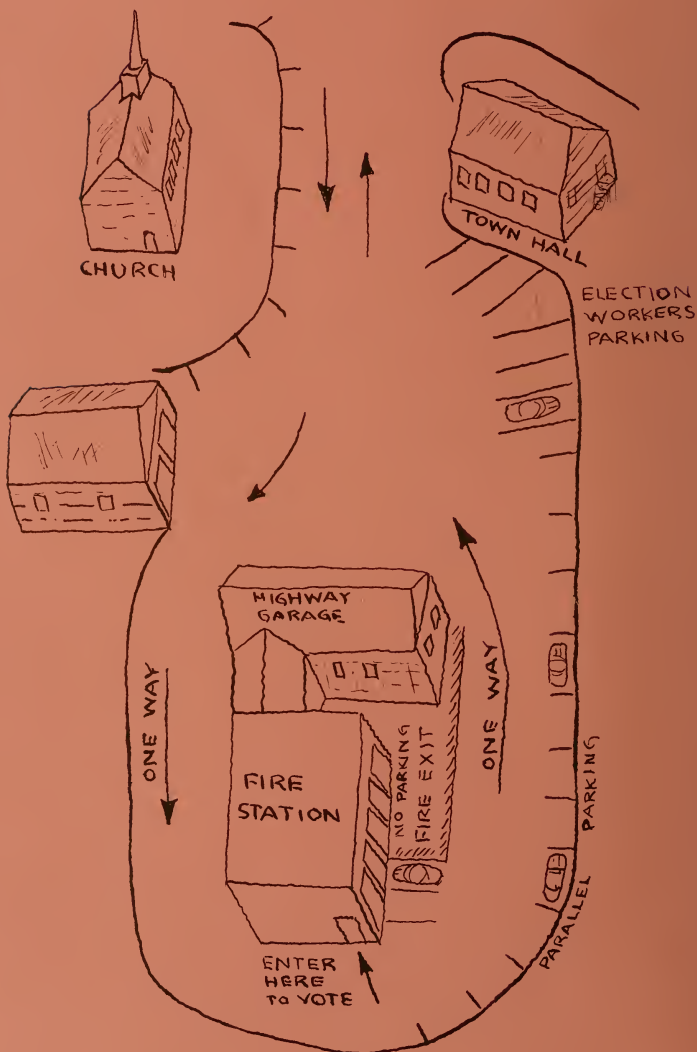 CHURCH
TOWN HALL
ELECTION
WORKERS
PARKING
HIGHWAY
GARAGE
ONE WAY
ONE WAY
FIRE
STATION
NO PARKING
FIRE EXIT
PARALLEL PARKING
ENTER
HERE
TO VOTE